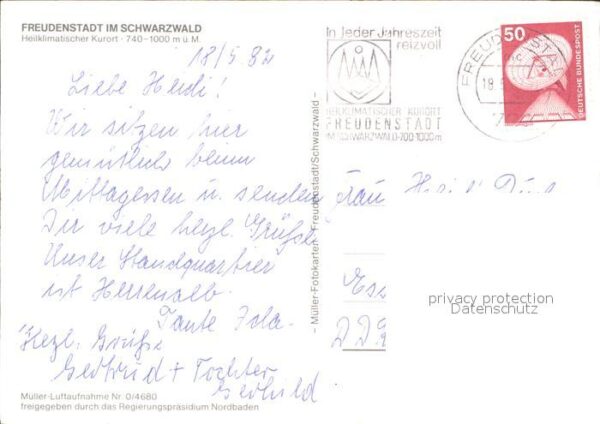 FREUDENSTADT IM SCHWARZWALD
Heilklimatischer Kurort · 740–1000 m ü. M.
18/5.82
Liebe Heidi!
Wir sitzen hier
gemütlich beim
Mittagessen u. senden
Dir viele herzl. Grüße
Unser Standquartier
ist Herrenalb.
Tante Ida.
Herzl. Grüße
Gertrud + Tochter
Gerhild
Müller-Luftaufnahme Nr. 0/4680
freigegeben durch das Regierungspräsidium Nordbaden
– Müller-Fotokarten · Freudenstadt/Schwarzwald –
In jeder Jahreszeit
reizvoll
HEILKLIMATISCHER KURORT
FREUDENSTADT
IM SCHWARZWALD·700·1000m
50
DEUTSCHE BUNDESPOST
Frau
privacy protection
Datenschutz